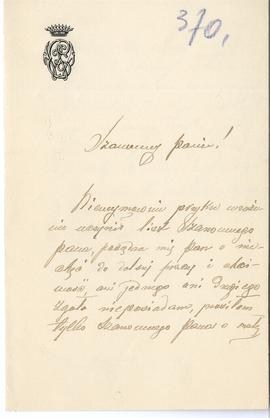 370,
Szanowny panie!
Nieuzmowim przykre wraże
nie uczynił list Szanownego
pana, posądza mię pan o nie
chęć do dalszej pracy i
ani jednego ani drugiego
zgoła nieposiadam, prosiłem
tylko Szanownego pana o małą